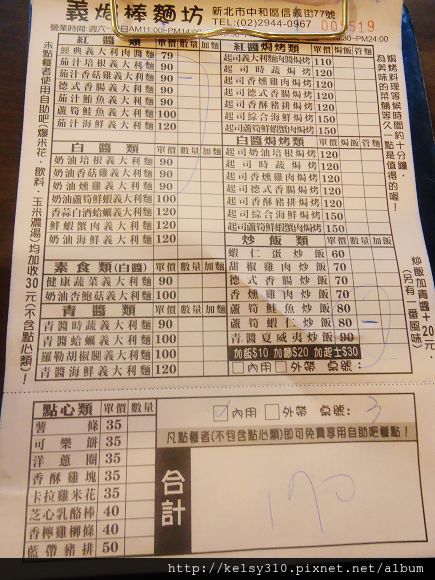 義炮棒麵坊
新北市中和區信義街77號
TEL:(02)2944-0967
紅醬類 單價 數量 加麵
經典義大利肉醬麵 79
茄汁培根義大利麵 90
茄汁香菇義大利麵 90
茄汁德式香腸義大利麵 90
茄汁鮪魚義大利麵 90
蘆筍鮮蝦義大利麵 100
茄汁海鮮義大利麵 120
白醬類 單價 數量 加麵
奶油培根義大利麵 90
奶油香菇雞義大利麵 90
奶油燻雞義大利麵 90
奶油蘆筍鮮蝦義大利麵 100
香蒜白酒蛤蠣義大利麵 120
鮮蝦蟹肉義大利麵 120
奶油海鮮義大利麵 120
素食類(白醬) 單價 數量 加麵
健康蔬菜義大利麵 90
奶油杏鮑菇義大利麵 90
青醬類 單價 數量 加麵
青醬時蔬義大利麵 90
青醬蛤蠣義大利麵 100
羅勒胡椒腿義大利麵 100
青醬海鮮義大利麵 120
紅醬焗烤類 單價 焗飯 管麵
起司義大利麵肉醬焗烤 110
起司時蔬焗烤 120
起司燻雞焗烤 120
起司德式香腸焗烤 120
起司香酥豬排焗烤 130
起司綜合海鮮焗烤 150
起司蘆筍鮮蝦蟹肉焗烤 150
白醬焗烤類 單價 焗飯 管麵
起司奶油培根焗烤 120
起司時蔬焗烤 120
起司燻雞焗烤 120
起司德式香腸焗烤 120
起司香酥豬排焗烤 130
起司綜合海鮮焗烤 150
起司蘆筍鮮蝦焗烤 150
炒飯類 單價 數量 加飯
蝦仁蛋炒飯 60
甜椒雞丁炒飯 70
德式香腸炒飯 70
香燻雞肉炒飯 70
蘆筍鮭魚炒飯 80
蘆筍蝦仁炒飯 80
青醬夏威夷炒飯 90
加飯$10 加麵$20 加起士$30
□內用 □外帶
未點餐者使用自助吧(爆米花、飲料、玉米濃湯)均加收30元(不含點心類)!
焗烤料理等候時間約十分鐘,
為美味的菜餚等久一點是值得的喔!
炒飯加青醬+20元,
(另有一番風味)
點心類 單價 數量
薯條 35
可樂餅 35
洋蔥圈 35
香酥雞塊 35
卡拉雞米花 35
芝心乳酪棒 40
香檸雞柳條 40
藍帶豬排 50
☑內用 □外帶 桌號: 3
凡點餐者(不包含點心類)即可免費享用自助吧餐點!
合計
170
http://kelsy310.pixnet.net/album